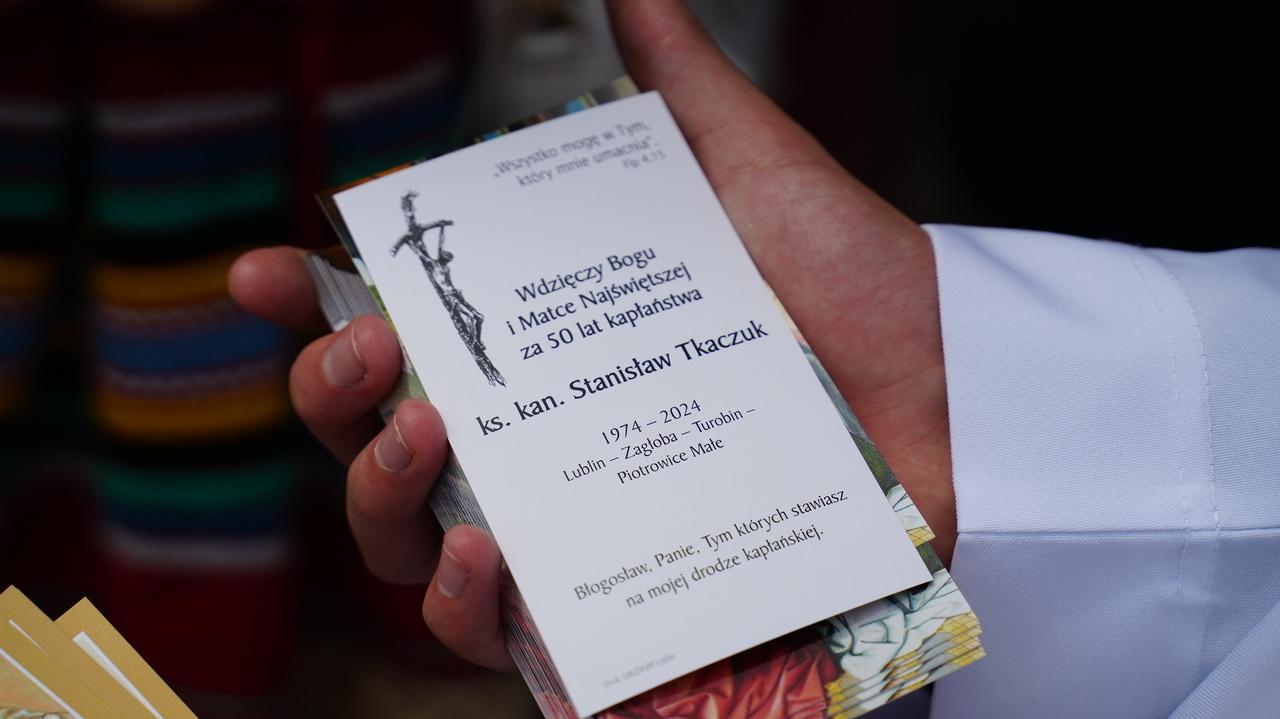 „Wszystko mogę w Tym,
który mnie umacnia”.
Flp 4,13
Wdzięczy Bogu
i Matce Najświętszej
za 50 lat kapłaństwa
ks. kan. Stanisław Tkaczuk
1974 – 2024
Lublin – Zagłoba – Turobin –
Piotrowice Małe
Błogosław, Panie, Tym których stawiasz
na mojej drodze kapłańskiej.
Druk: GAUDIUM Lublin